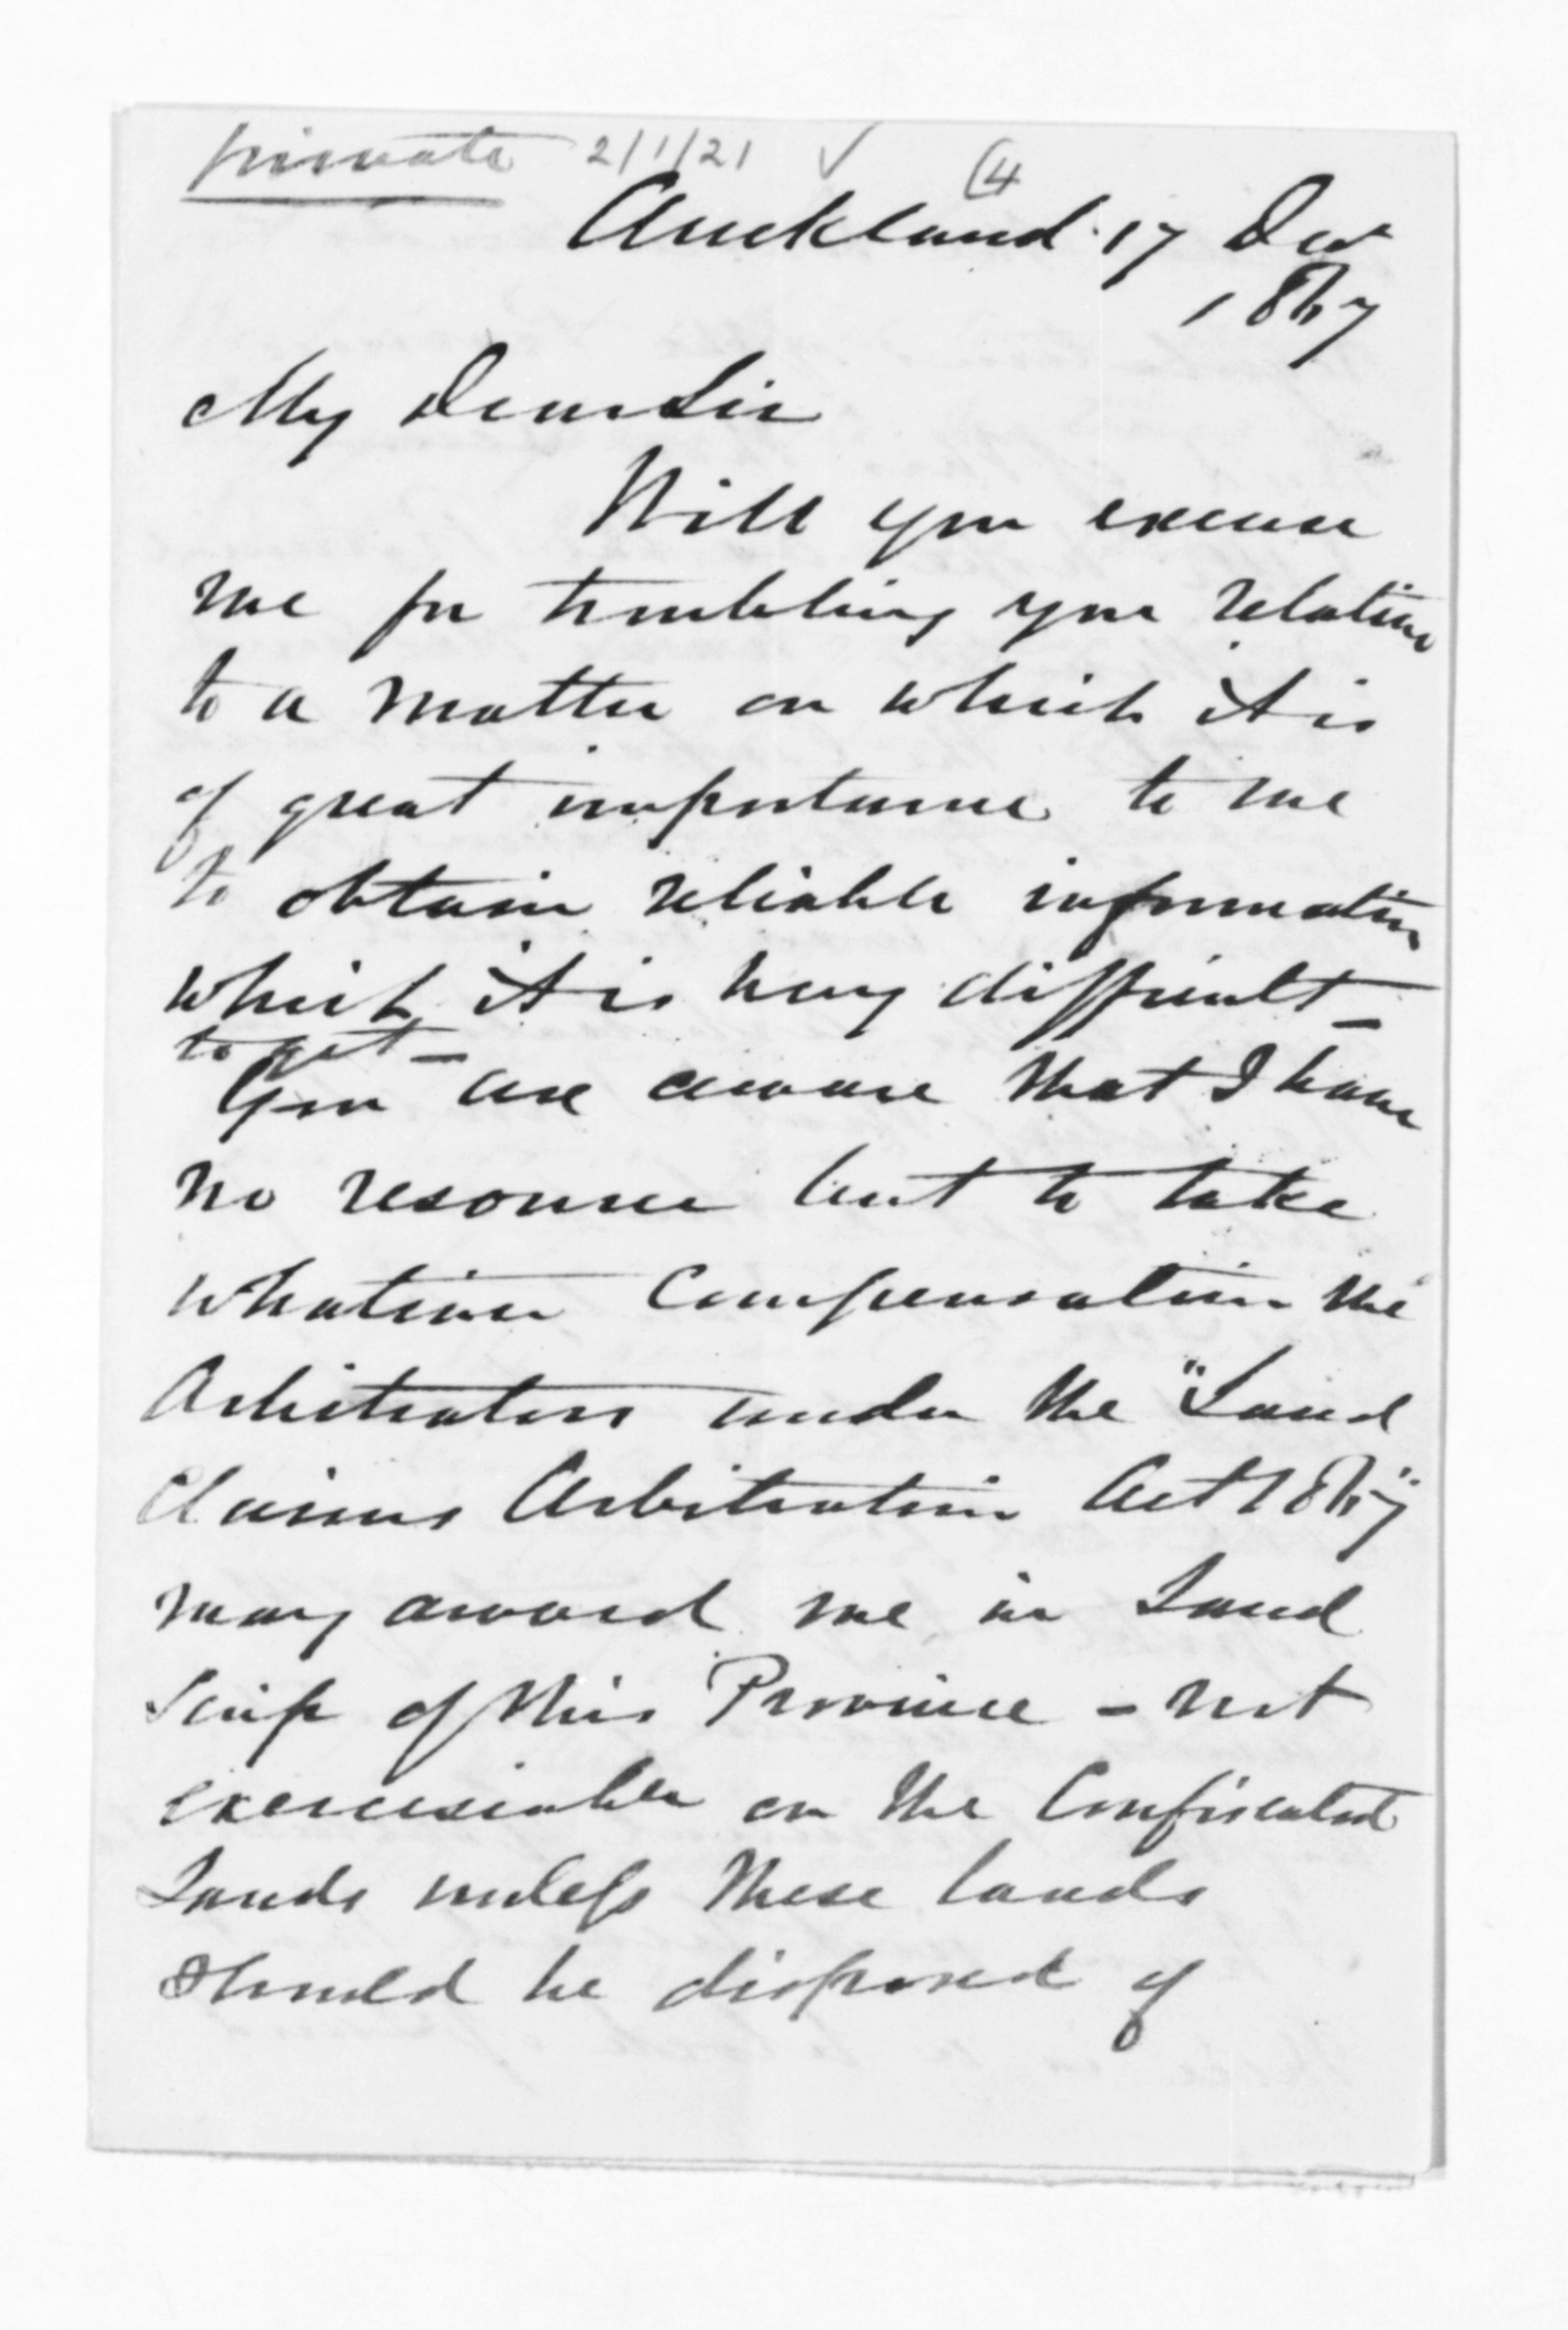 private 2/1/21 ✓ (4
Auckland 17 Dec
1867
My Dear Sir
Will you excuse
me for troubling you relative
to a matter on which it is
of great importance to me
to obtain reliable information
which it is very difficult
to get –
You are aware that I have
no resource but to take
whatever Compensation the
Arbitrators under the "Land
Claims Arbitration Act 1867"
may award me in Land
Scrip of this Province – not
excerciseable on the Confiscated
Lands unless these lands
should be disposed of